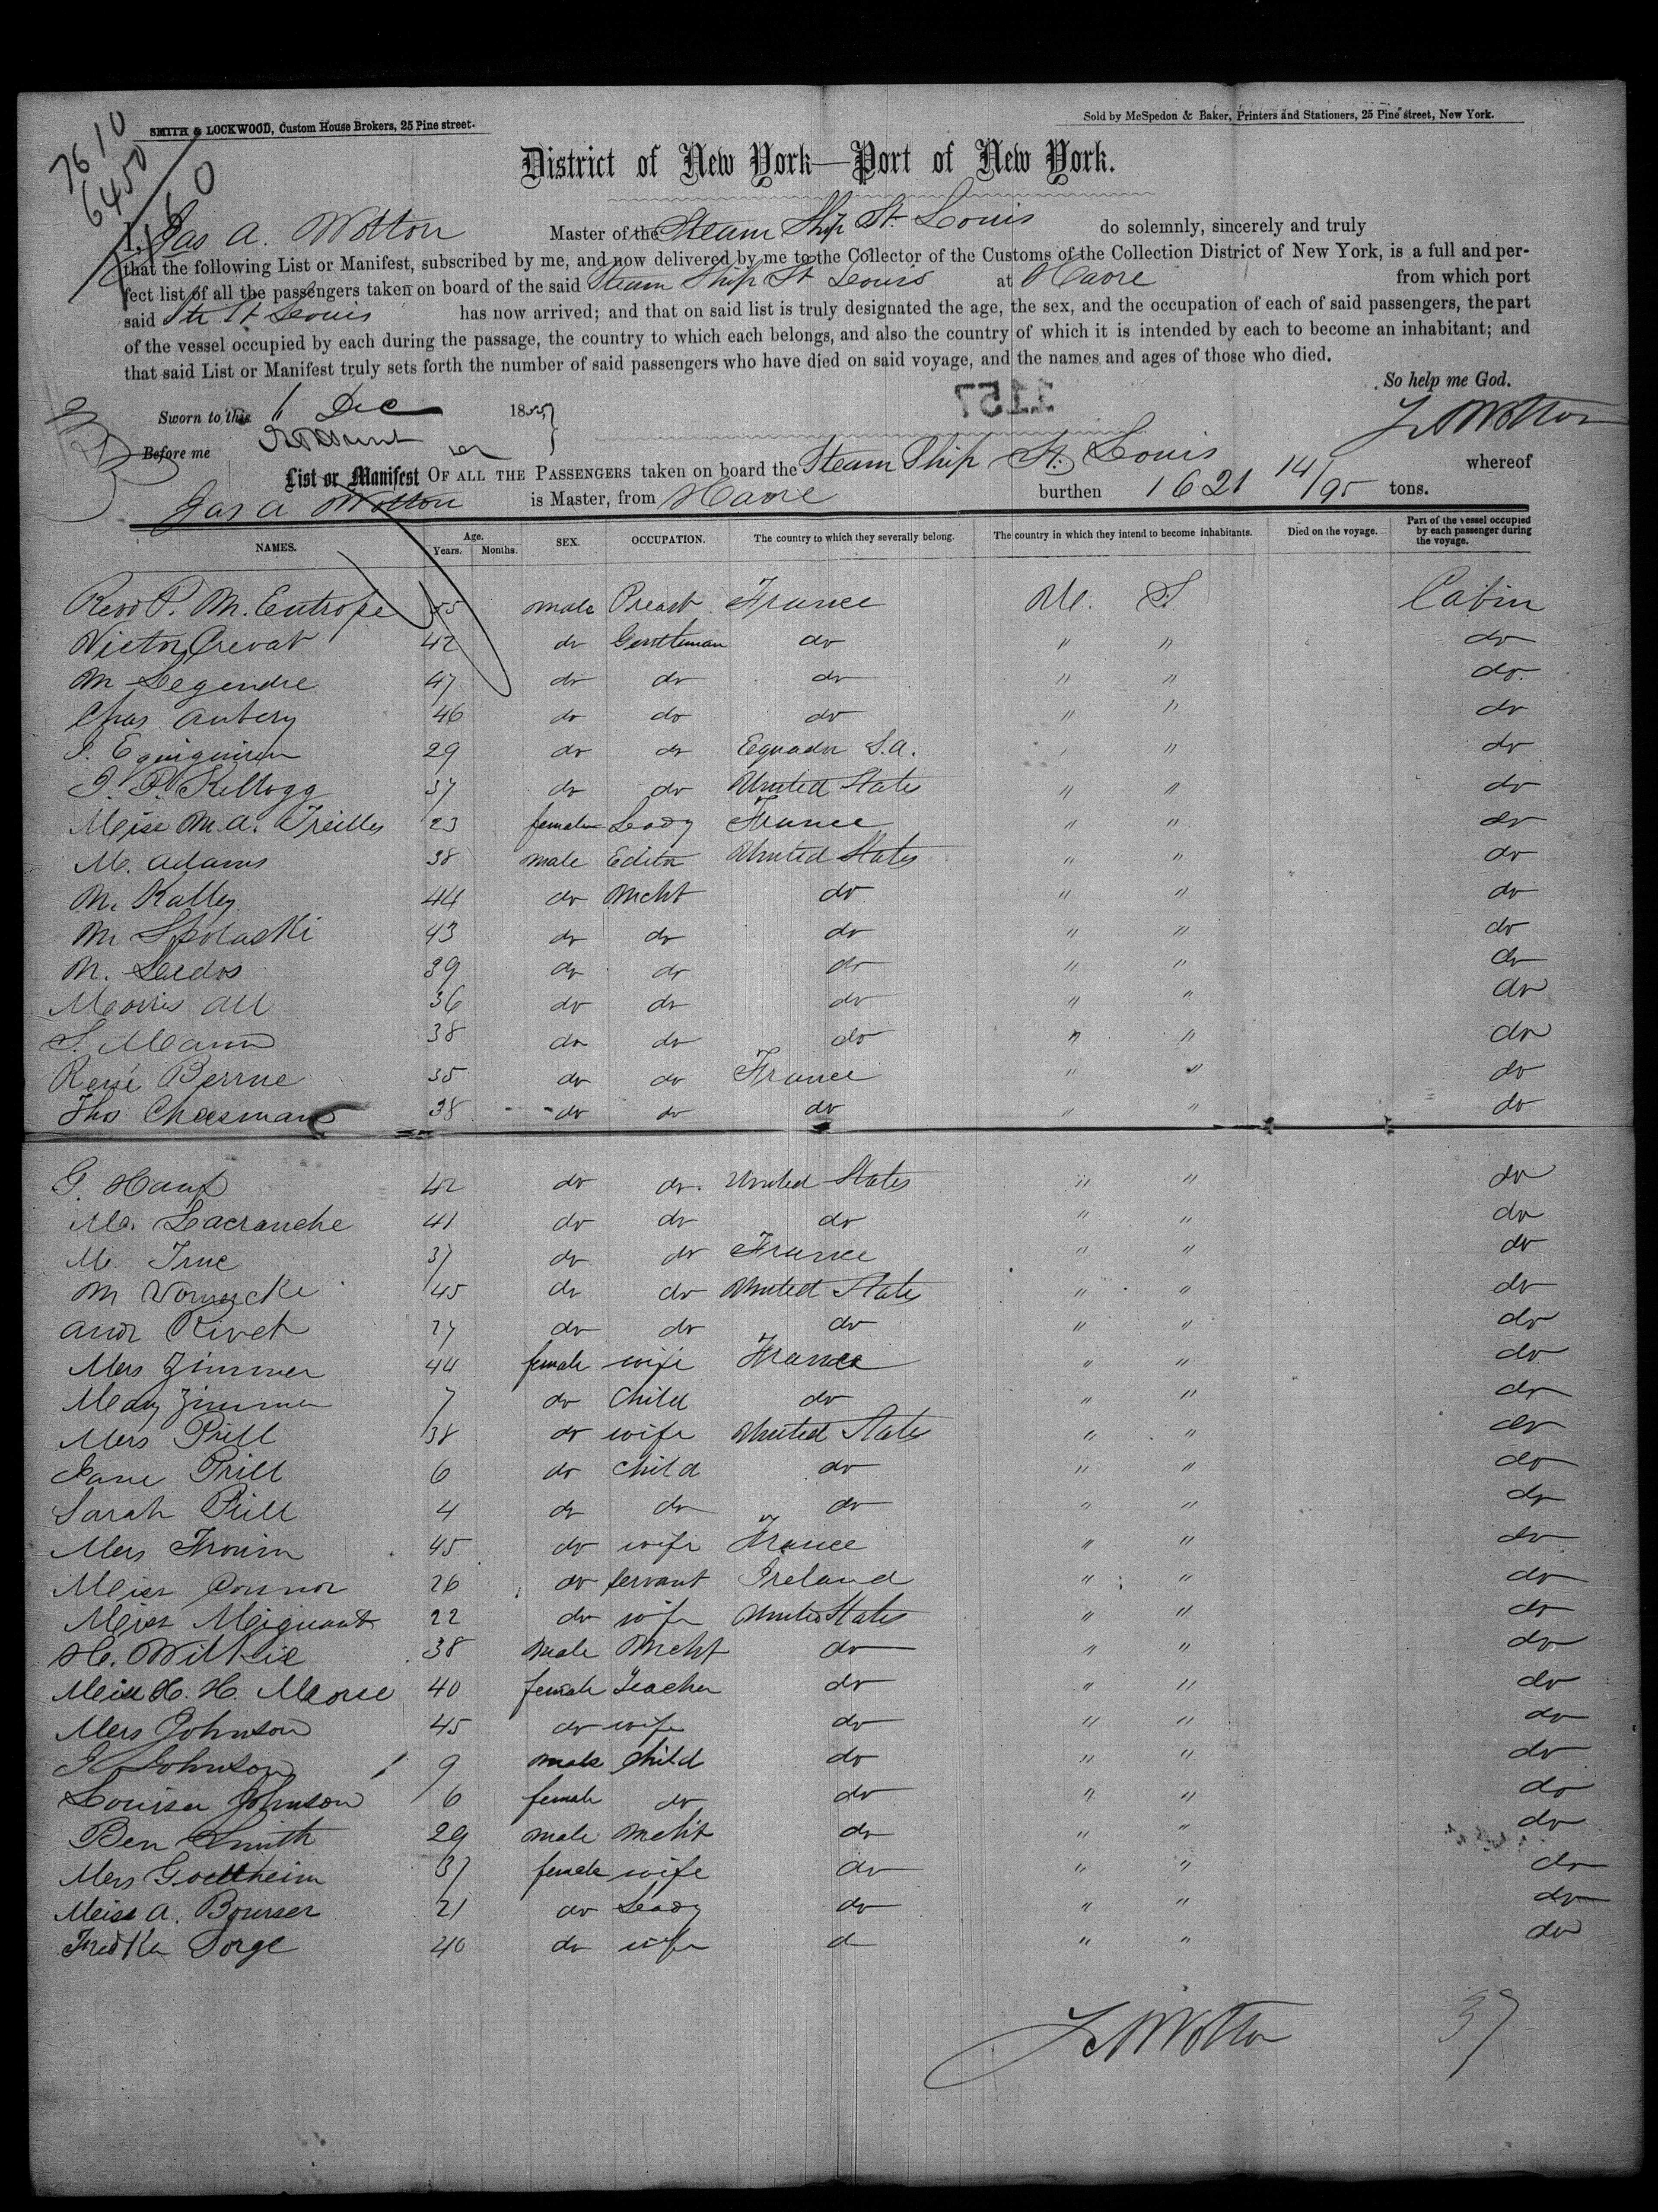 7610
6450
1160
SMITH & LOCKWOOD, Custom House Brokers, 25 Pine street.
Sold by McSpedon & Baker, Printers and Stationers, 25 Pine street, New York.
District of New York—Port of New York.
I, Jas A. Wotton Master of the Steam Ship St. Louis do solemnly, sincerely and truly
that the following List or Manifest, subscribed by me, and now delivered by me to the Collector of the Customs of the Collection District of New York, is a full and per-
fect list of all the passengers taken on board of the said Steam Ship St Louis at Havre from which port
said Str St Louis has now arrived; and that on said list is truly designated the age, the sex, and the occupation of each of said passengers, the part
of the vessel occupied by each during the passage, the country to which each belongs, and also the country of which it is intended by each to become an inhabitant; and
that said List or Manifest truly sets forth the number of said passengers who have died on said voyage, and the names and ages of those who died.
So help me God.
1157
Sworn to this 6 Dec 1855
J A Wotton
Before me
List or Manifest OF ALL THE PASSENGERS taken on board the Steam Ship St. Louis whereof
Jas A Wotton is Master, from Havre burthen 1621 14/95 tons.
NAMES. Age. Years. Months. SEX. OCCUPATION. The country to which they severally belong. The country in which they intend to become inhabitants. Died on the voyage. Part of the vessel occupied by each passenger during the voyage.
Revd P. M. Eutrope 55 male Preast France U. S Cabin
Victor Crevat 42 do Gentleman do " " do
M Legendre 47 do do do " " do
Chas Aubery 46 do do do " " do
29 do do Equador S.A. " do
J. P. Kellogg 37 do do United States " " do
Miss M.A. Treilles 23 female Lady France " " do
M. Adams 38 male Editor United States " " do
M. Kalley 44 do Mcht do " " do
M Spolaski 43 do do do " " do
M. Ledos 39 do do do " " do
Morris All 36 do do do " " do
S. Mann 38 do do do " " do
René Berrue 35 do do France " " do
Thos Cheesman 38 do do do " " do
G. Hauf 42 do do United States " " do
M. Lacranche 41 do do do " " do
M. True 37 do do France " " do
M 45 do do United States " " do
Andr Rivet 27 do do do " " do
Mrs Zimmer 44 female wife France " " do
Mary Zimmer 7 do Child do " " do
Mrs Prill 38 do wife United States " " do
Jane Prill 6 do child do " " do
Sarah Prill 4 do do do " " do
Mrs Froim 45 do wife France " " do
Miss Connor 26 do servant Ireland " " do
Miss Meignant 22 do wife United States " " do
H. Wilkie 38 male Mcht do " " do
Miss H. H. Morse 40 female Teacher do " " do
Mrs Johnson 45 do wife do " " do
Johnson 9 male Child do " " do
Louisa Johnson 6 female do do " " do
Ben Smith 29 male Mcht do " " do
Mrs Goettheim 37 female wife do " " do
Miss A. Bourser 21 do Lady do " " do
Fredka Sorge 40 do wife d " " do
J A Wotton 37